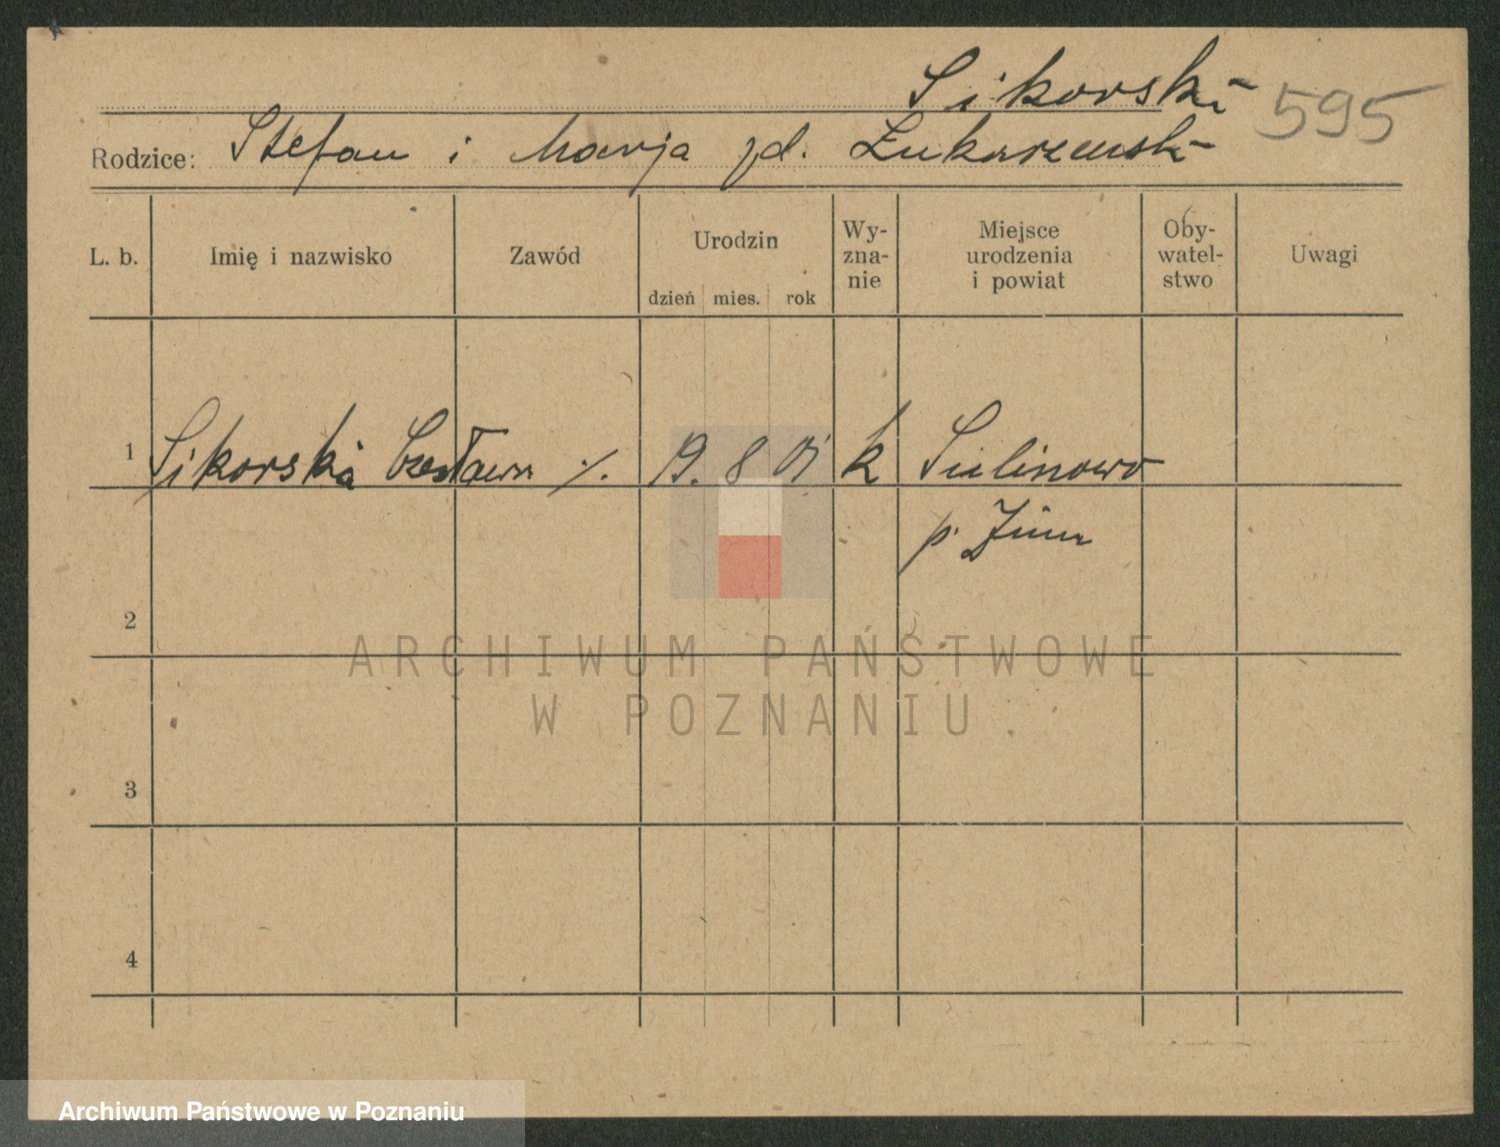 Sikorski 595
Rodzice: Stefan i Marja zd. Łukaszewski
L. b. Imię i nazwisko Zawód Urodzin dzień mies. rok Wy-zna-nie Miejsce urodzenia i powiat Oby-watel-stwo Uwagi
1 Sikorska Czesława ./. 19. 8 01 k Sulinowo
p.
2
ARCHIWUM PAŃSTWOWE
W POZNANIU
3
4
Archiwum Państwowe w Poznaniu